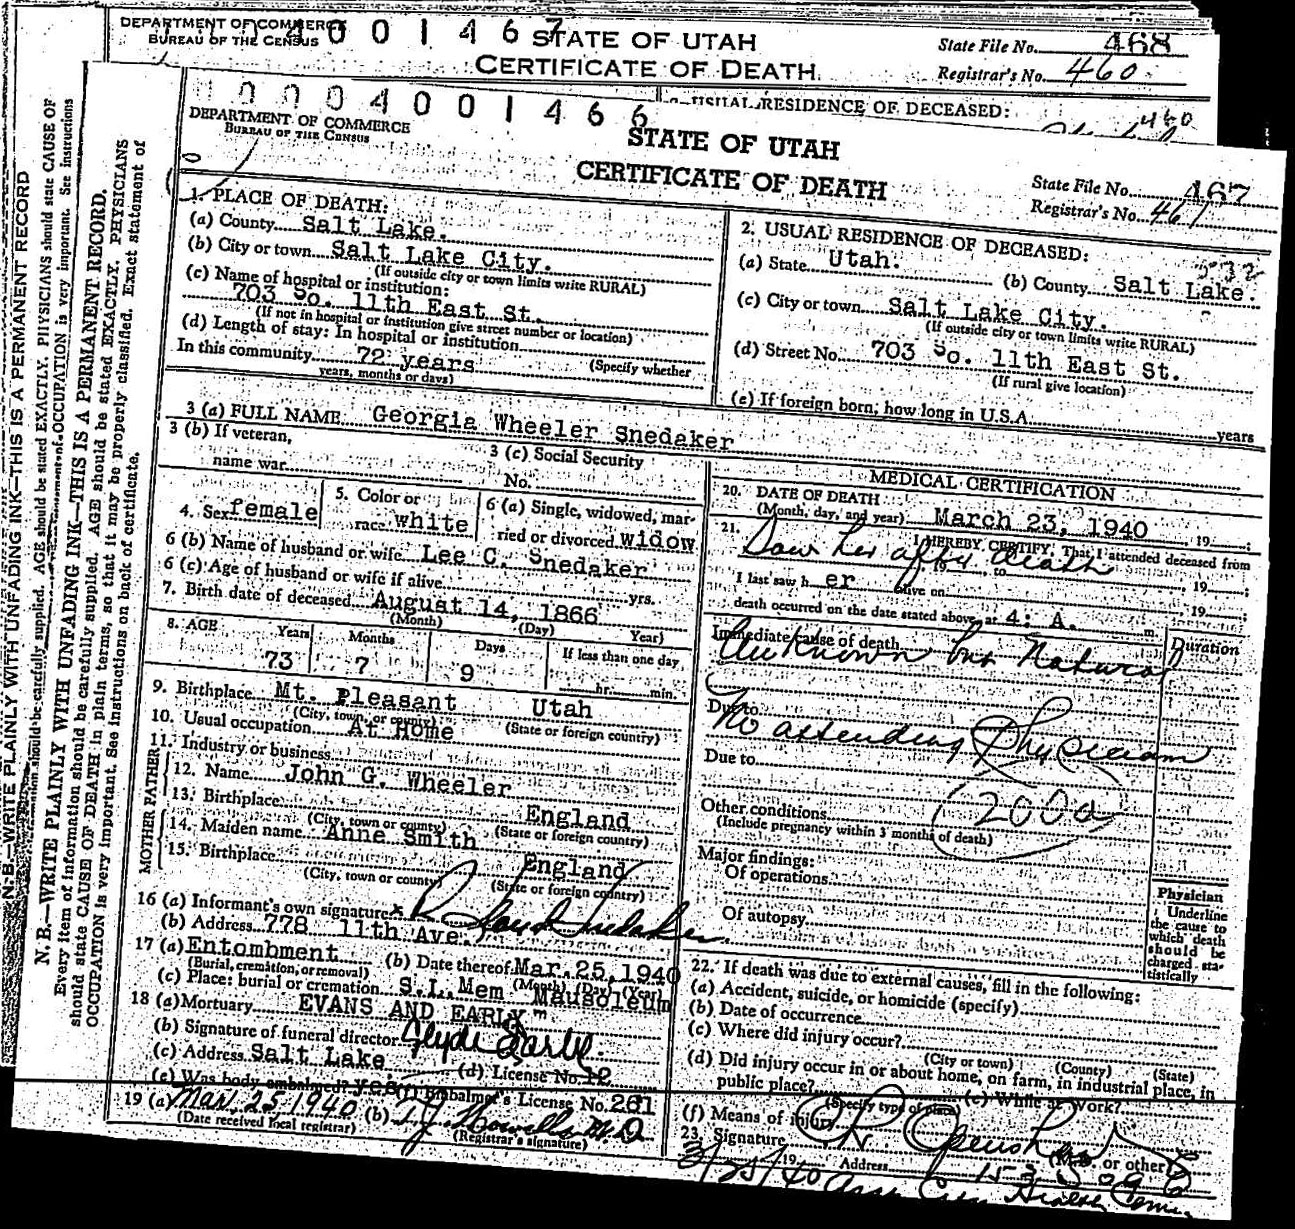 DEPARTMENT OF COMMERCE
BUREAU OF THE CENSUS
0 0 1 4 6 7
STATE OF UTAH
CERTIFICATE OF DEATH
State File No. 468
Registrar's No. 460
USUAL RESIDENCE OF DECEASED:
460
0 0 0 4 0 0 1 4 6 6
DEPARTMENT OF COMMERCE
BUREAU OF THE CENSUS
STATE OF UTAH
CERTIFICATE OF DEATH
State File No. 467
Registrar's No. 461
N. B.—WRITE PLAINLY WITH UNFADING INK—THIS IS A PERMANENT RECORD
should be carefully supplied. AGE should be stated EXACTLY. PHYSICIANS should state CAUSE OF
OCCUPATION is very important. See instructions
N. B.—WRITE PLAINLY WITH UNFADING INK—THIS IS A PERMANENT RECORD.
Every item of information should be carefully supplied. AGE should be stated EXACTLY. PHYSICIANS
should state CAUSE OF DEATH in plain terms, so that it may be properly classified. Exact statement of
OCCUPATION is very important. See instructions on back of certificate.
1. PLACE OF DEATH:
(a) County Salt Lake.
(b) City or town Salt Lake City.
(If outside city or town limits write RURAL)
(c) Name of hospital or institution:
703 So. 11th East St.
(If not in hospital or institution give street number or location)
(d) Length of stay: In hospital or institution
In this community 72 years (Specify whether
years, months or days)
2. USUAL RESIDENCE OF DECEASED:
532
(a) State Utah. (b) County Salt Lake.
(c) City or town Salt Lake City.
(If outside city or town limits write RURAL)
(d) Street No. 703 So. 11th East St.
(If rural give location)
(e) If foreign born, how long in U.S.A. years
3 (a) FULL NAME Georgia Wheeler Snedaker
3 (b) If veteran,
name war
3 (c) Social Security
No.
4. Sex female
5. Color or
race white
6 (a) Single, widowed, mar-
ried or divorced widow
6 (b) Name of husband or wife Lee C. Snedaker
6 (c) Age of husband or wife if alive yrs.
7. Birth date of deceased August 14, 1866
(Month) (Day) Year)
8. AGE Years Months Days If less than one day
73 7 9 hr. min.
9. Birthplace Mt. Pleasant Utah
(City, town, or county) (State or foreign country)
10. Usual occupation At Home
11. Industry or business
FATHER
12. Name John G. Wheeler
13. Birthplace England
(City, town or county) (State or foreign country)
MOTHER
14. Maiden name Anne Smith
15. Birthplace England
(City, town or county) (State or foreign country)
16 (a) Informant's own signature x R Snedaker
(b) Address 778 11th Ave.
17 (a) Entombment (b) Date thereof Mar. 25, 1940
(Burial, cremation, or removal) (Month) (Day) (Year)
(c) Place: burial or cremation S.L. Mem Mausoleum
18 (a) Mortuary EVANS AND EARLY
(b) Signature of funeral director Clyde Early.
(c) Address Salt Lake (d) License No. 12
(e) Was body embalmed? yes (f) Embalmer's License No. 261
19 (a) Mar. 25 1940 (b) T. J. Howells M.D
(Date received local registrar) (Registrar's signature)
MEDICAL CERTIFICATION
20. DATE OF DEATH
(Month, day, and year) March 23, 1940 19 ;
21. I HEREBY CERTIFY, That I attended deceased from
Saw her after death
to 19 ;
I last saw h er alive on 19 ;
death occurred on the date stated above, at 4: A. m.
Immediate cause of death Duration
Unknown but Natural
Due to
No attending Physician
Due to
200a
Other conditions
(Include pregnancy within 3 months of death)
Major findings:
Of operations
Of autopsy
Physician
Underline
the cause to
which death
should be
charged sta-
tistically
22. If death was due to external causes, fill in the following:
(a) Accident, suicide, or homicide (specify)
(b) Date of occurrence
(c) Where did injury occur?
(City or town) (County) (State)
(d) Did injury occur in or about home, on farm, in industrial place, in
public place?
(Specify type of place) (e) While at work?
(f) Means of injury
23. Signature Openshaw (M.D. or other)
3/25/40 19 Address